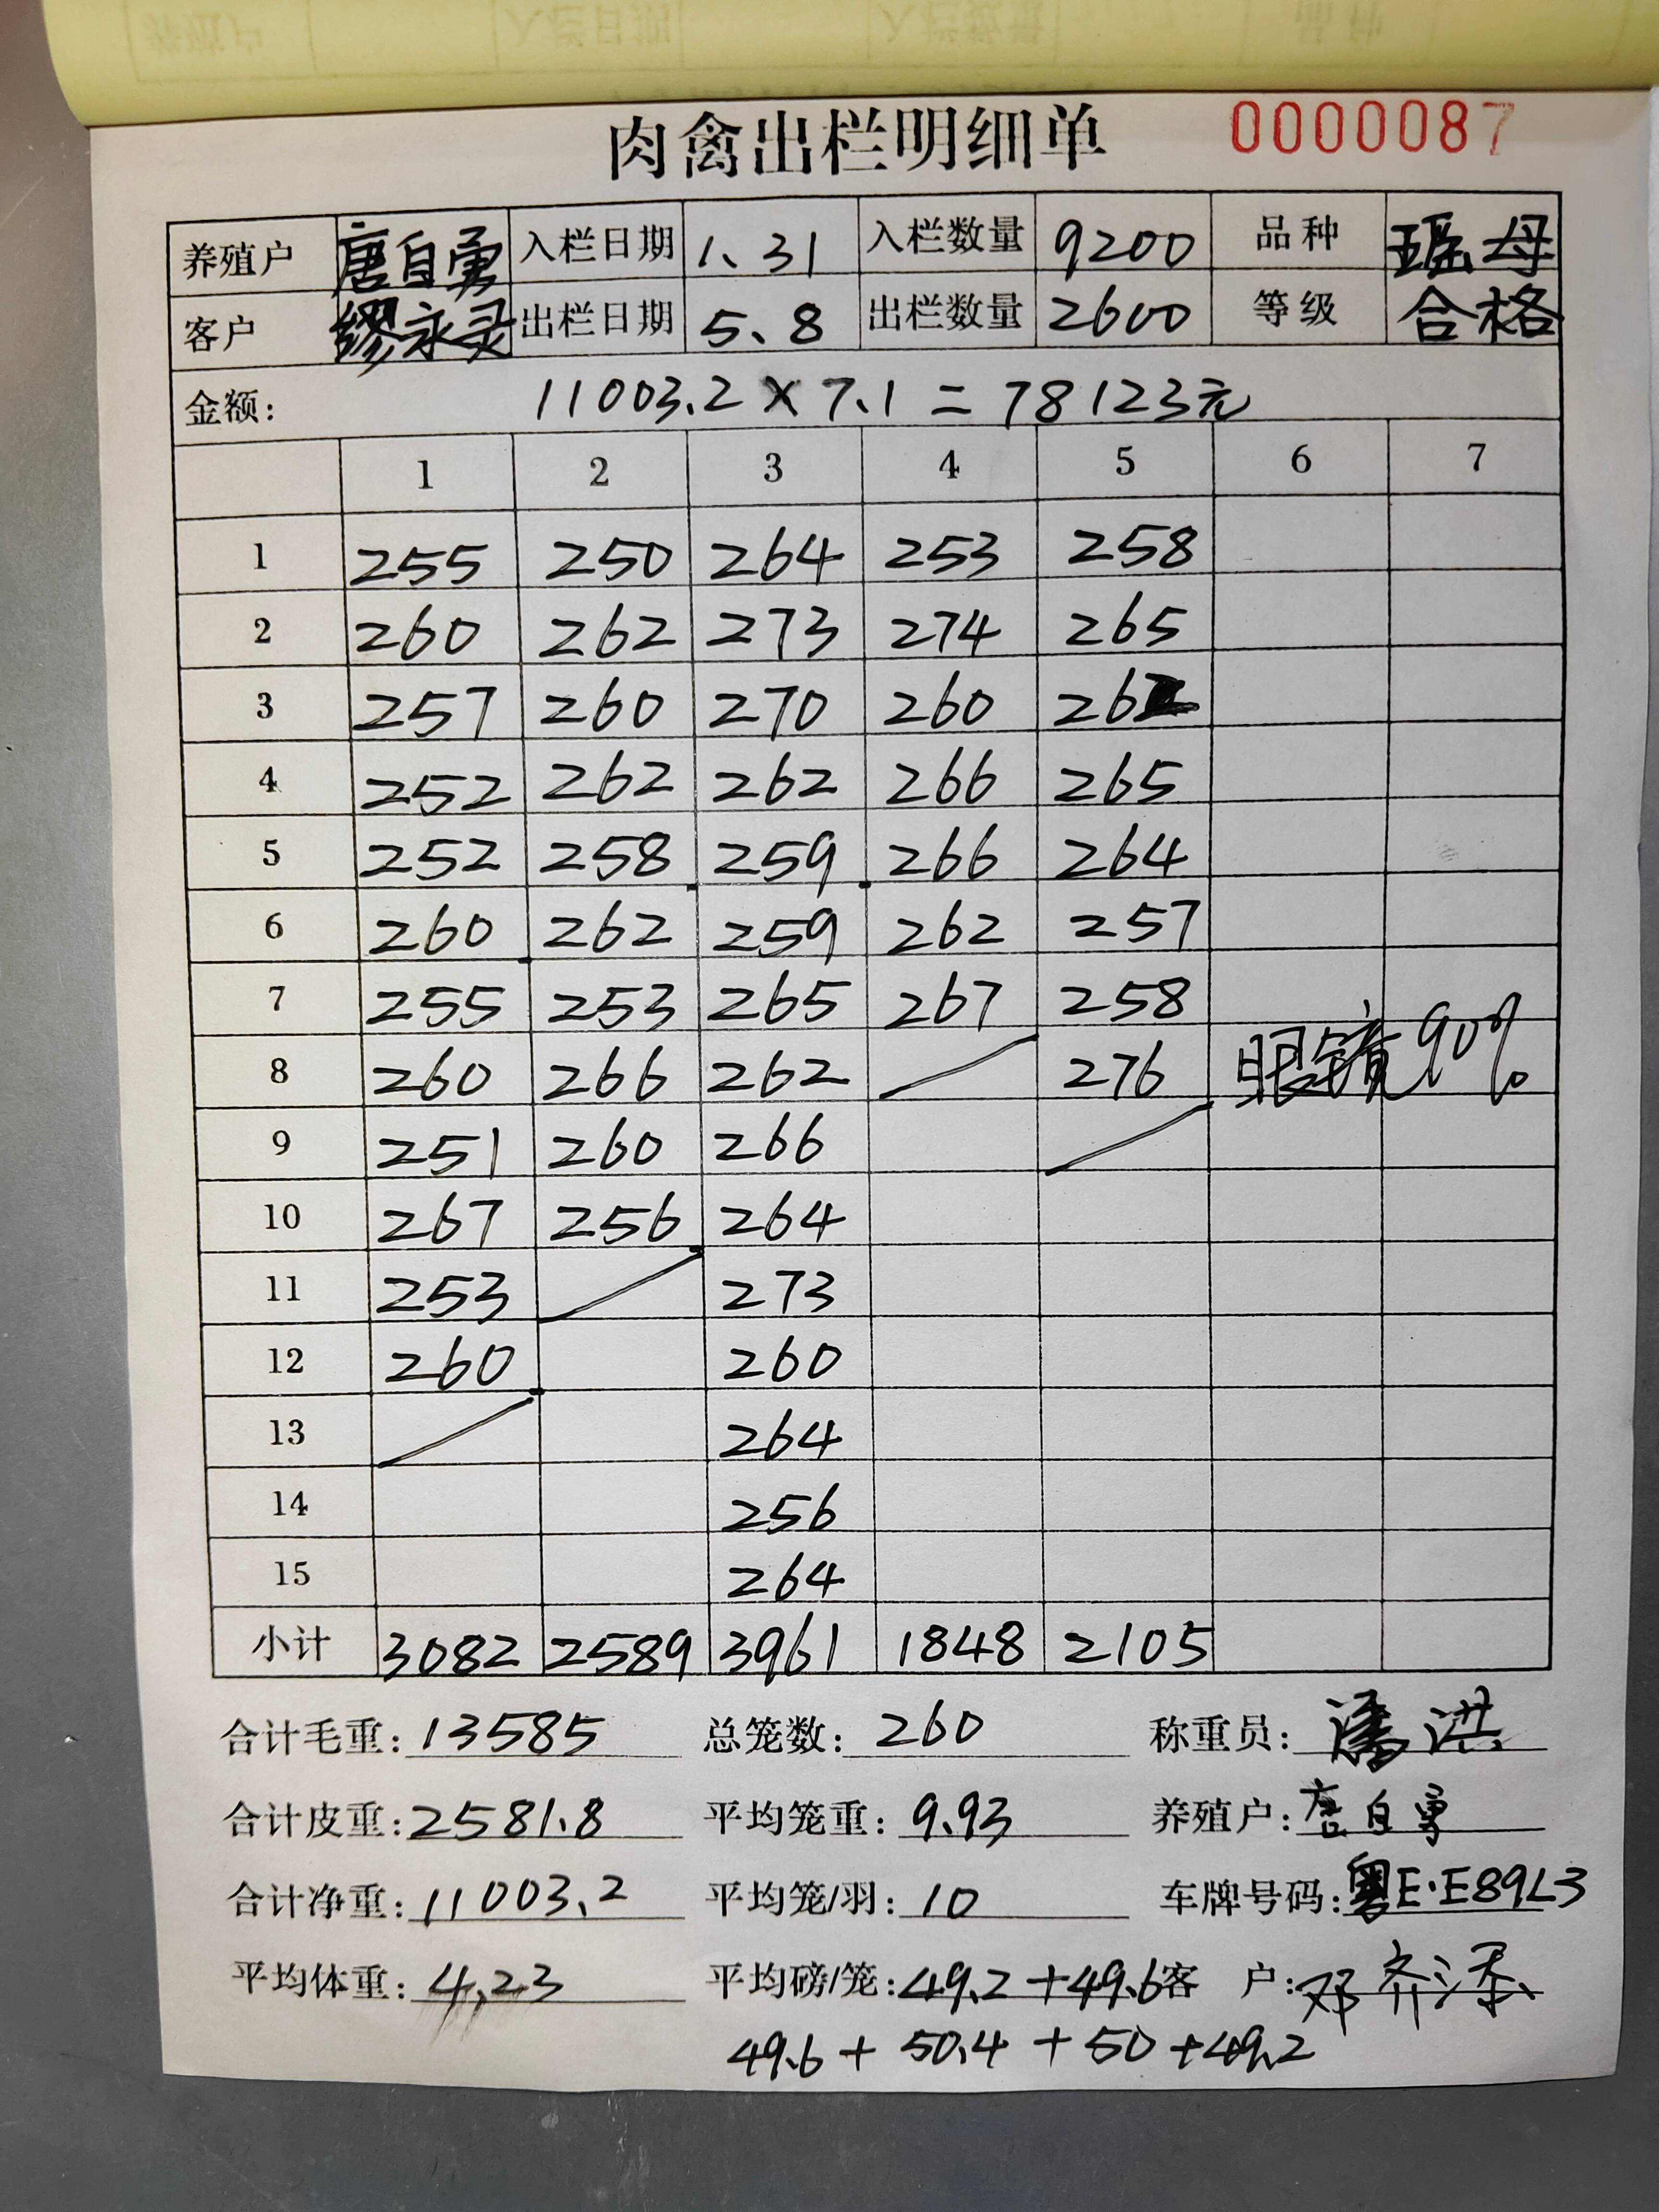 肉禽出栏明细单 0000087
养殖户 唐自勇 入栏日期 1、31 入栏数量 9200 品种 瑶母
客户 缪永灵 出栏日期 5、8 出栏数量 2600 等级 合格
金额: 11003.2 × 7.1 = 78123元
1 2 3 4 5 6 7
1 255 250 264 253 258
2 260 262 273 274 265
3 257 260 270 260 262
4 252 262 262 266 265
5 252 258 259 266 264
6 260 262 259 262 257
7 255 253 265 267 258
8 260 266 262 276 眼镜90%
9 251 260 266
10 267 256 264
11 253 273
12 260 260
13 264
14 256
15 264
小计 3082 2589 3961 1848 2105
合计毛重: 13585 总笼数: 260 称重员: 潘洪
合计皮重: 2581.8 平均笼重: 9.93 养殖户: 唐自勇
合计净重: 11003.2 平均笼/羽: 10 车牌号码: 粤E·E89L3
平均体重: 4.23 平均磅/笼: 49.2+49.6 客 户: 邓齐
49.6 + 50.4 + 50 + 49.2